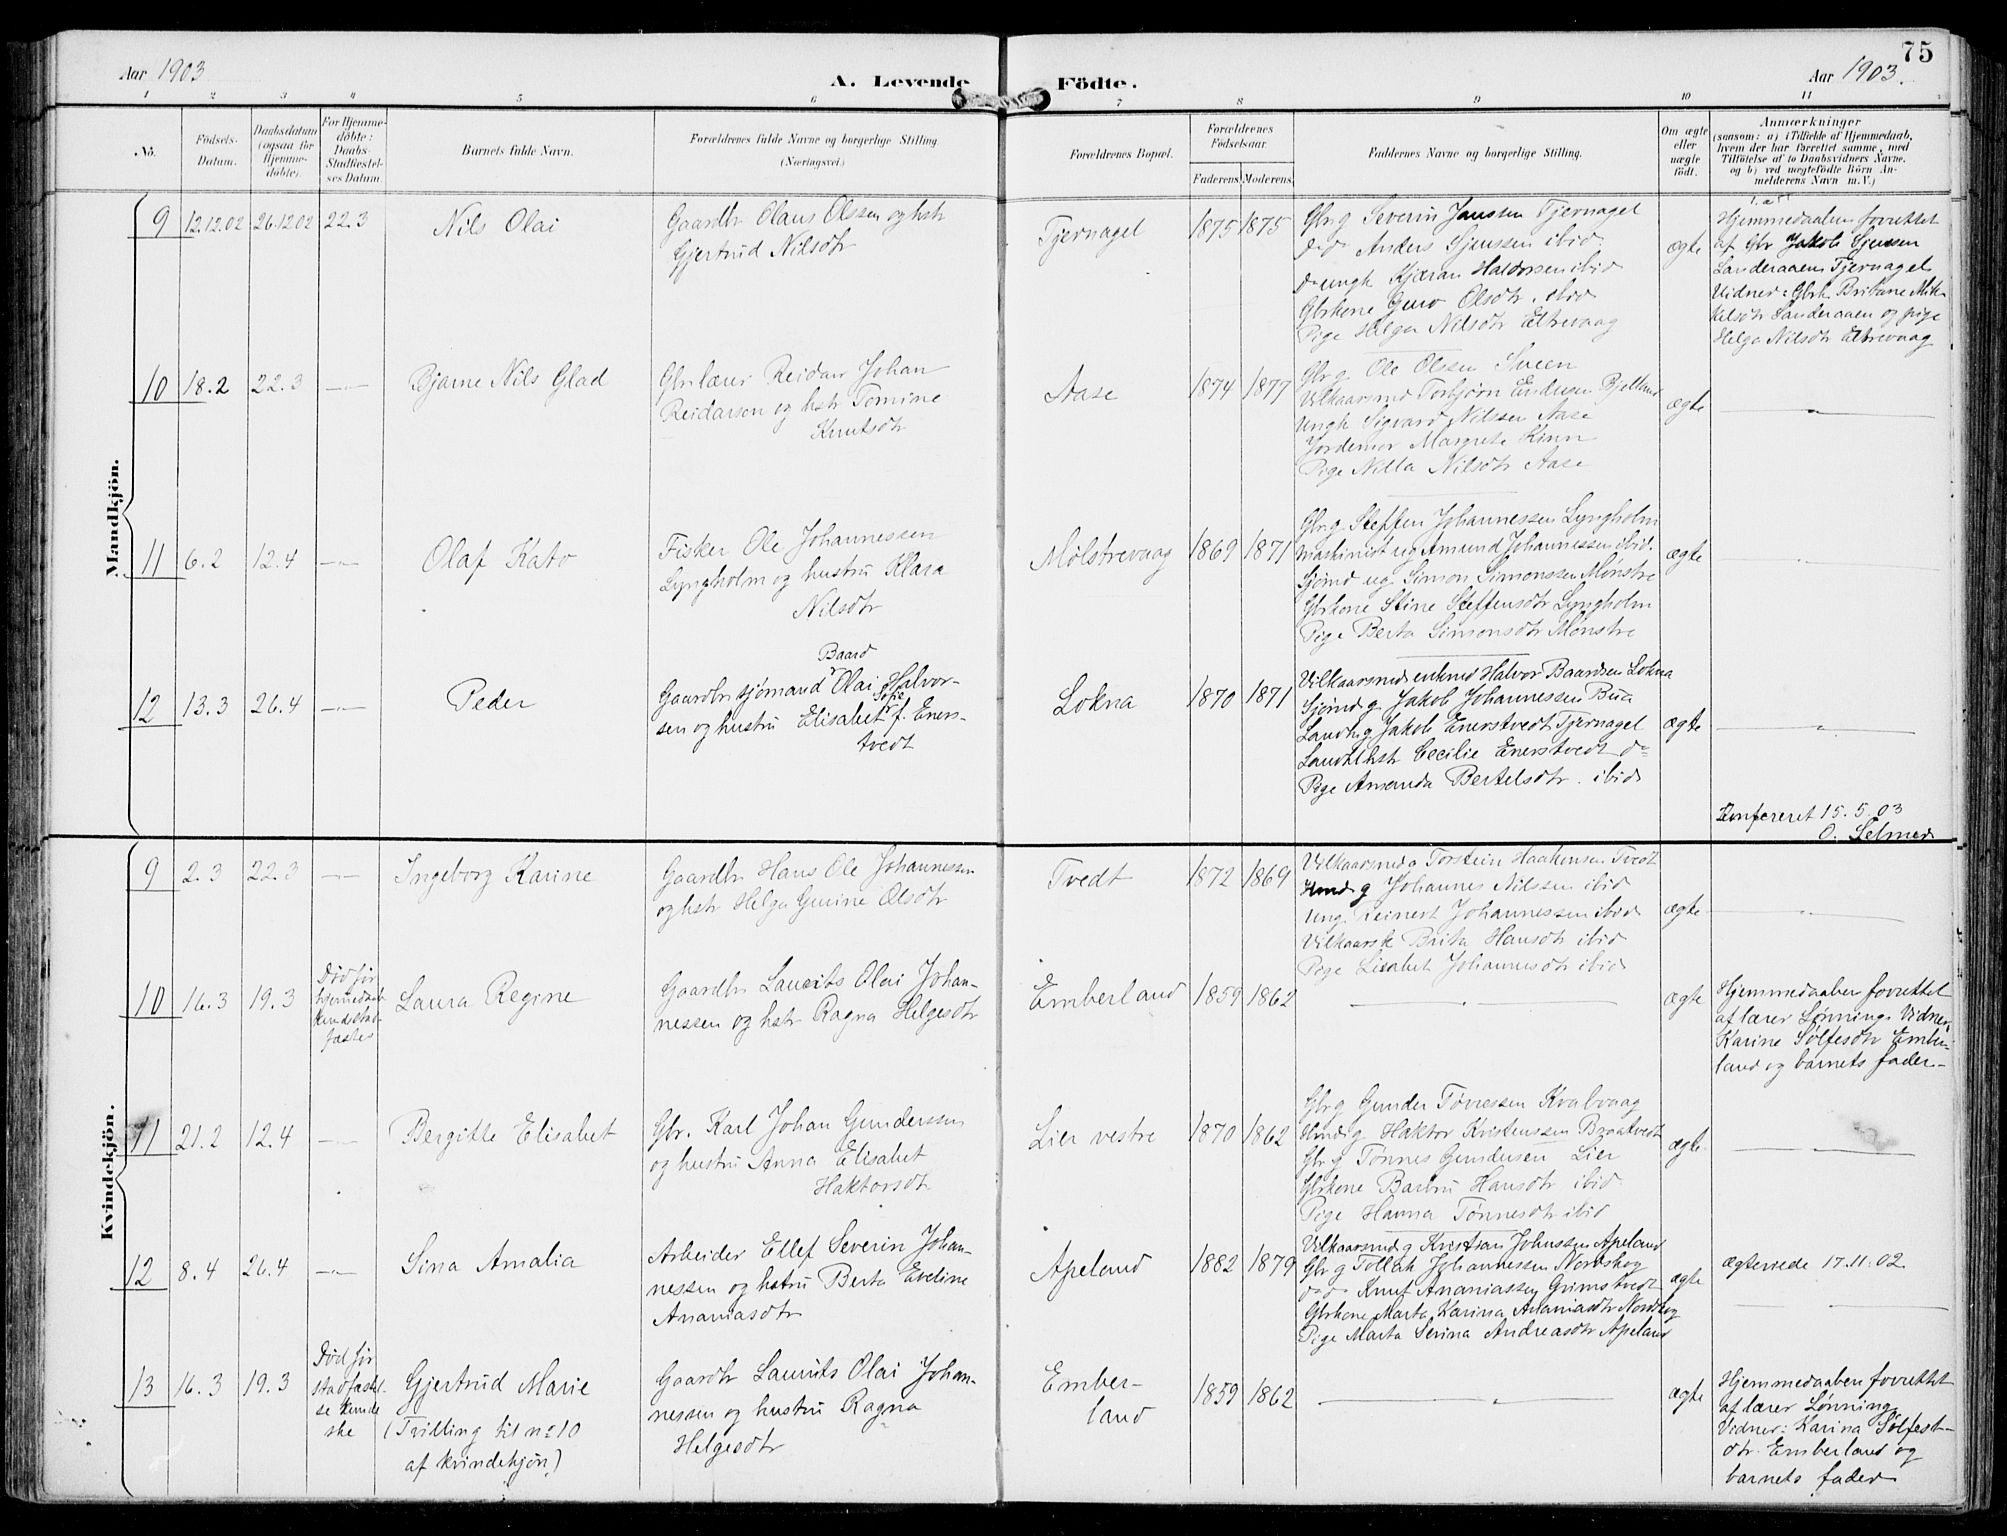 75
Aar 1903
A. Levende Födte.
Aar 1903.
1 2 3 4 5 6 7 8 9 10 11
No.
Födsels-
Datum.
Daabsdatum
(ogsaa for
Hjemme-
döbte).
For Hjemme-
döbte:
Daabs-
Stadfæstel-
ses Datum.
Barnets fulde Navn.
Forældrenes fulde Navne og borgerlige Stilling.
(Næringsvei.)
Forældrenes Bopæl.
Forældrenes
Födselsaar.
Faderens. Moderens.
Faddernes Navne og borgerlige Stilling.
Om ægte
eller
uægte
födt.
Anmærkninger
(saasom: a) i Tilfælde af Hjemmedaab,
hvem der har forrettet samme, med
Tilföielse af to Daabsvidners Navne.
og b) ved uægtefödte Börn An-
melderens Navn m. V.)
Mandkjön.
9 12.12.02 26.12.02 22.3
Nils Olai
Gaardbr Olaus Olssen og hstr
Gjertrud Nilsdtr
Tjernagel
1875 1875
Gbr g Severin Janssen Tjernagel
d d Anders Sjurssen ibid.
d ungk Kjæran Haldorsen ibid
Gbrkone Guro Olsdtr. ibid
Pige Helga Nilsdtr Eltrevaag
ægte
Hjemmedaaben forrettet
af Gbr Jakob Sjurssen
Landeraaen Tjernagel
Vidner: Gbrk. Britane Mik-
kelsdtr Landeraaen og pige
Helga Nilsdtr Eltrevaag
10 18.2 22.3 —"—
Bjarne Nils Glad
Gbr lærer Reidar Johan
Reidarsen og hstr Tomine
Knutsdtr
Aase
1874 1877
Gbr g Ole Olssen Sveen
Vilkaarsmd Torbjörn Endresen Bjelland
Ungk Sigvard Nilssen Aase
Jordemor Margrete Hinn
Pige Nilla Nilsdtr Aase
ægte
—"—
11 6.2 12.4 —"—
Olaf Kato
Fisker Ole Johannessen
Lyngholm og hustru Klara
Nilsdtr
Mölstrevaag
1869 1871
Gbr g Steffen Johannessen Lyngholm
Maskinist ug Amund Johannessen ibid.
Sjömd ug. Simon Simonssen Mönstre
Gbrkone Stine Steffensdtr Lyngholm
Pige Berta Simonsdtr Mönstre
ægte
—"—
12 13.3 26.4 —"—
Peder
Baard
Gaardbr sjömand Olai Halvor-
Sofie
sen og hustru Elisabet f. Eners-
tvedt
Lokna
1870 1871
Vilkaarsmd enkmd Halvor Baardsen Lokna
Sjömd g Jakob Johannessen Bua
Landh g Jakob Enerstvedt Tjernagel
Landhhstr Cecilie Enerstvedt do
Pige Amanda Bertelsdtr. ibid
ægte
—"—
Konfereret 15.5.03
O. Selmer
Kvindekjön.
9 2.3 22.3 —"—
Ingeborg Karine
Gaardbr Hans Ole Johannessen
og hstr Helga Gurine Olsdtr
Tvedt
1872 1869
Vilkaarsmd g Torstein Haakensen Tvedt
Hmd g Johannes Nilssen ibid
Ung. Reinert Johannessen ibid
Vilkaarsk Brita Hansdtr ibid
Pige Lisabet Johannesdtr ibid
ægte
—"—
10 16.3 19.3
Död för
hjemmedaab
kunde stad-
fæstes
Laura Regine
Gaardbr Laurits Olai Johan-
nessen og hstr Ragna Helgesdtr
Emberland
1859 1862
—"—
ægte
Hjemmedaaben forrettet
af lærer Lönning. Vidner,
Karine Sölfesdtr Ember-
land og barnets fader—
11 21.2 12.4 —"—
Bergitte Elisabet
Gbr. Karl Johan Gunderssen
og hustru Anna Elisabet
Haktorsdtr
Lier vestre
1870 1862
Gbr g Gunder Tönnessen Kvalvaag
Hmd g Haktor Kristenssen Braatvedt
Gbr g Tönnes Gundersen Lier
Gbrkone Barbru Hansdtr ibid.
Pige Hanna Tönnesdtr ibid
ægte
—"—
12 8.4 26.4 —"—
Sina Amalia
Arbeider Ellef Severin Johan-
nessen og hstru Berta Eveline
Ananiasdtr
Apeland
1882 1879
Vilkaarsmd g Kristian Johnssen Apeland
Gbr g Tollak Johannessen Nordskog
d d Knut Ananiassen Grimstvedt
Gbrkone Marta Karina Ananiasdtr Nordskog
Pige Marta Serina Andreasdtr Apeland
ægte
ægteviede 17.11.02
—"—
13 16.3 19.3
Död för
stadfæstel-
se kunde
ske
Gjertrud Marie
(Tvilling til no 10
af kvindekjön)
Gaardbr Laurits Olai Johan-
nessen og hustru Ragna
Helgesdtr
Ember-
land
1859 1862
—"—
ægte
Hjemmedaaben forrettet
af lærer Lönning
Vidner: Karina Sölfest-
dtr. Emberland og
barnets fader